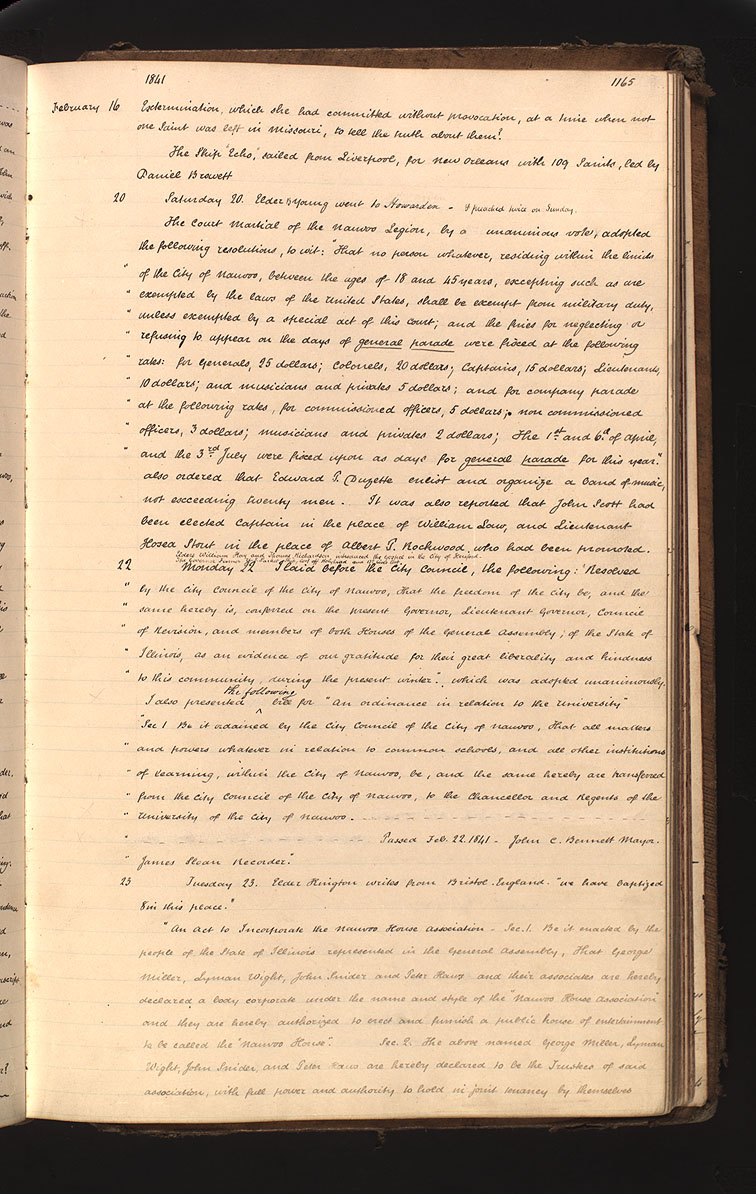 1841 1165
February 16 Extermination, which she had committed without provocation, at a time when not
one Saint was left in Missouri, to tell the truth about them!
The Ship "Echo," sailed from Liverpool, for New Orleans with 109 Saints, led by
Daniel Browett
20 Saturday 20. Elder B Young went to Hawarden - & preached twice on Sunday.
The Court Martial of the Nauvoo Legion, by a unanimous vote, adopted
the following resolutions, to wit: "That no person whatever, residing within the limits
" of the City of Nauvoo, between the ages of 18 and 45 years, excepting such as are
" exempted by the laws of the United States, shall be exempt from military duty,
" unless exempted by a special act of this court; and the fines for neglecting or
" refusing to appear on the days of general parade were fixed at the following
" rates: for Generals, 25 dollars; Colonels, 20 dollars; Captains, 15 dollars; Lieutenants,
" 10 dollars; and musicians and privates 5 dollars; and for company parade
" at the following rates, for commissioned officers, 5 dollars; non commissioned
" officers, 3 dollars; musicians and privates 2 dollars; The 1st and 6th of April,
" and the 3rd July were fixed upon as days for general parade for this year."
also ordered that Edward P. Duzette enlist and organize a band of music,
not exceeding twenty men. It was also reported that John Scott had
been elected Captain in the place of William Law, and Lieutenant
Hosea Stout in the place of Albert P. Rockwood who had been promoted.
Elders William and Thomas Richardson introduced the gospel in the City of Hereford.
22 Monday 22 I laid before the City Council, the following: "Resolved
" by the City Council of the City of Nauvoo, that the freedom of the City be, and the
" same hereby is, conferred on the present Governor, Lieutenant Governor, Council
" of Revision, and members of both Houses of the General Assembly, of the State of
" Illinois, as an evidence of our gratitude for their great liberality and kindness
" to this community, during the present winter". which was adopted unanimously.
I also presented ^ the following bill for "An ordinance in relation to the University"
"Sec 1 Be it ordained by the City Council of the City of Nauvoo, That all matters
" and powers whatever in relation to common schools, and all other institutions
" of Learning, within the City of Nauvoo, be, and the same hereby are transferred
" from the City Council of the City of Nauvoo, to the Chancellor and Regents of the
" University of the City of Nauvoo.
" Passed Feb. 22. 1841 - John C. Bennett Mayor.
" James Sloan Recorder."
23 Tuesday 23. Elder Kington writes from Bristol. England. "we have baptized
8 in this place."
"An Act to Incorporate the Nauvoo House Association - Sec. 1. Be it enacted by the
people of the State of Illinois represented in the General Assembly, That George
Miller, Lyman Wight, John Snider and Peter Haws and their associates are hereby
declared a body corporate under the name and style of the "Nauvoo House Association"
and they are hereby authorized to erect and furnish a public house of entertainment
to be called the "Nauvoo House". Sec. 2. The above named George Miller, Lyman
Wight, John Snider, and Peter Haws are hereby declared to be the Trustees of said
association, with full power and authority to hold in joint tenancy by themselves